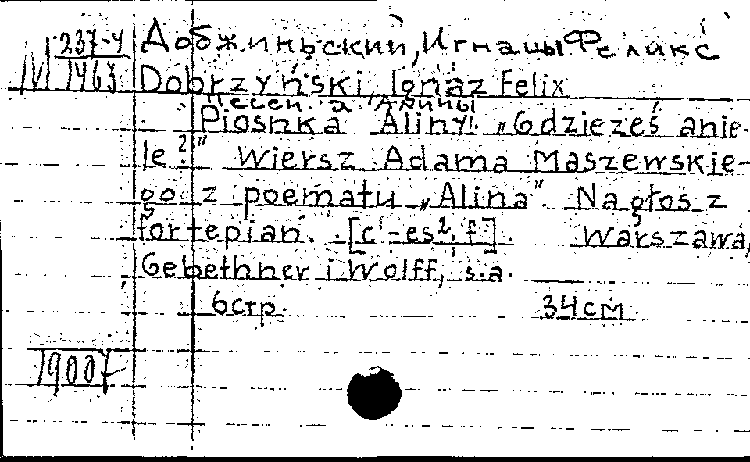 М 237-4
1463
Добжиньский, Игнацы Феликс
Dobrzyński, Ignaz Felix
Песен‑ка Алины
Piosnka Aliny! „Gdzieżeś anie-
le?" Wiersz Adama Maszewskie-
go z poematu „Alina". Na głos z
fortepian. [c¹-es², f²]. Warszawa,
Gebethner i Wolff, s.a.
6 стр. 34 см
19007